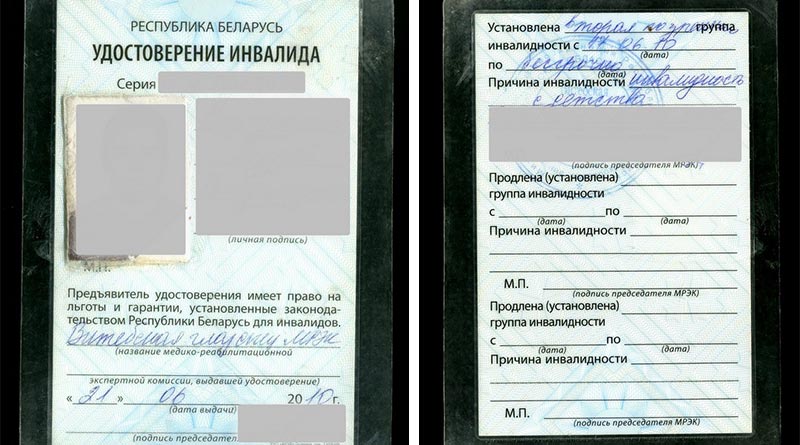 РЕСПУБЛИКА БЕЛАРУСЬ
УДОСТОВЕРЕНИЕ ИНВАЛИДА
Серия
(личная подпись)
М.П.
Предъявитель удостоверения имеет право на
льготы и гарантии, установленные законода-
тельством Республики Беларусь для инвалидов.
Витебская МРЭК
(название медико-реабилитационной
экспертной комиссии, выдавшей удостоверение)
« 21 » 06 2010 г.
(дата выдачи)
(подпись председател
Установлена вторая группа
инвалидности с 17 06 10
(дата)
по бессрочно
(дата)
Причина инвалидности инвалидность
с детства
(подпись председателя МРЭК)
Продлена (установлена)
группа инвалидности
с по
(дата) (дата)
Причина инвалидности
М.П.
(подпись председателя МРЭК)
Продлена (установлена)
группа инвалидности
с по
(дата) (дата)
Причина инвалидности
М.П.
(подпись председателя МРЭК)